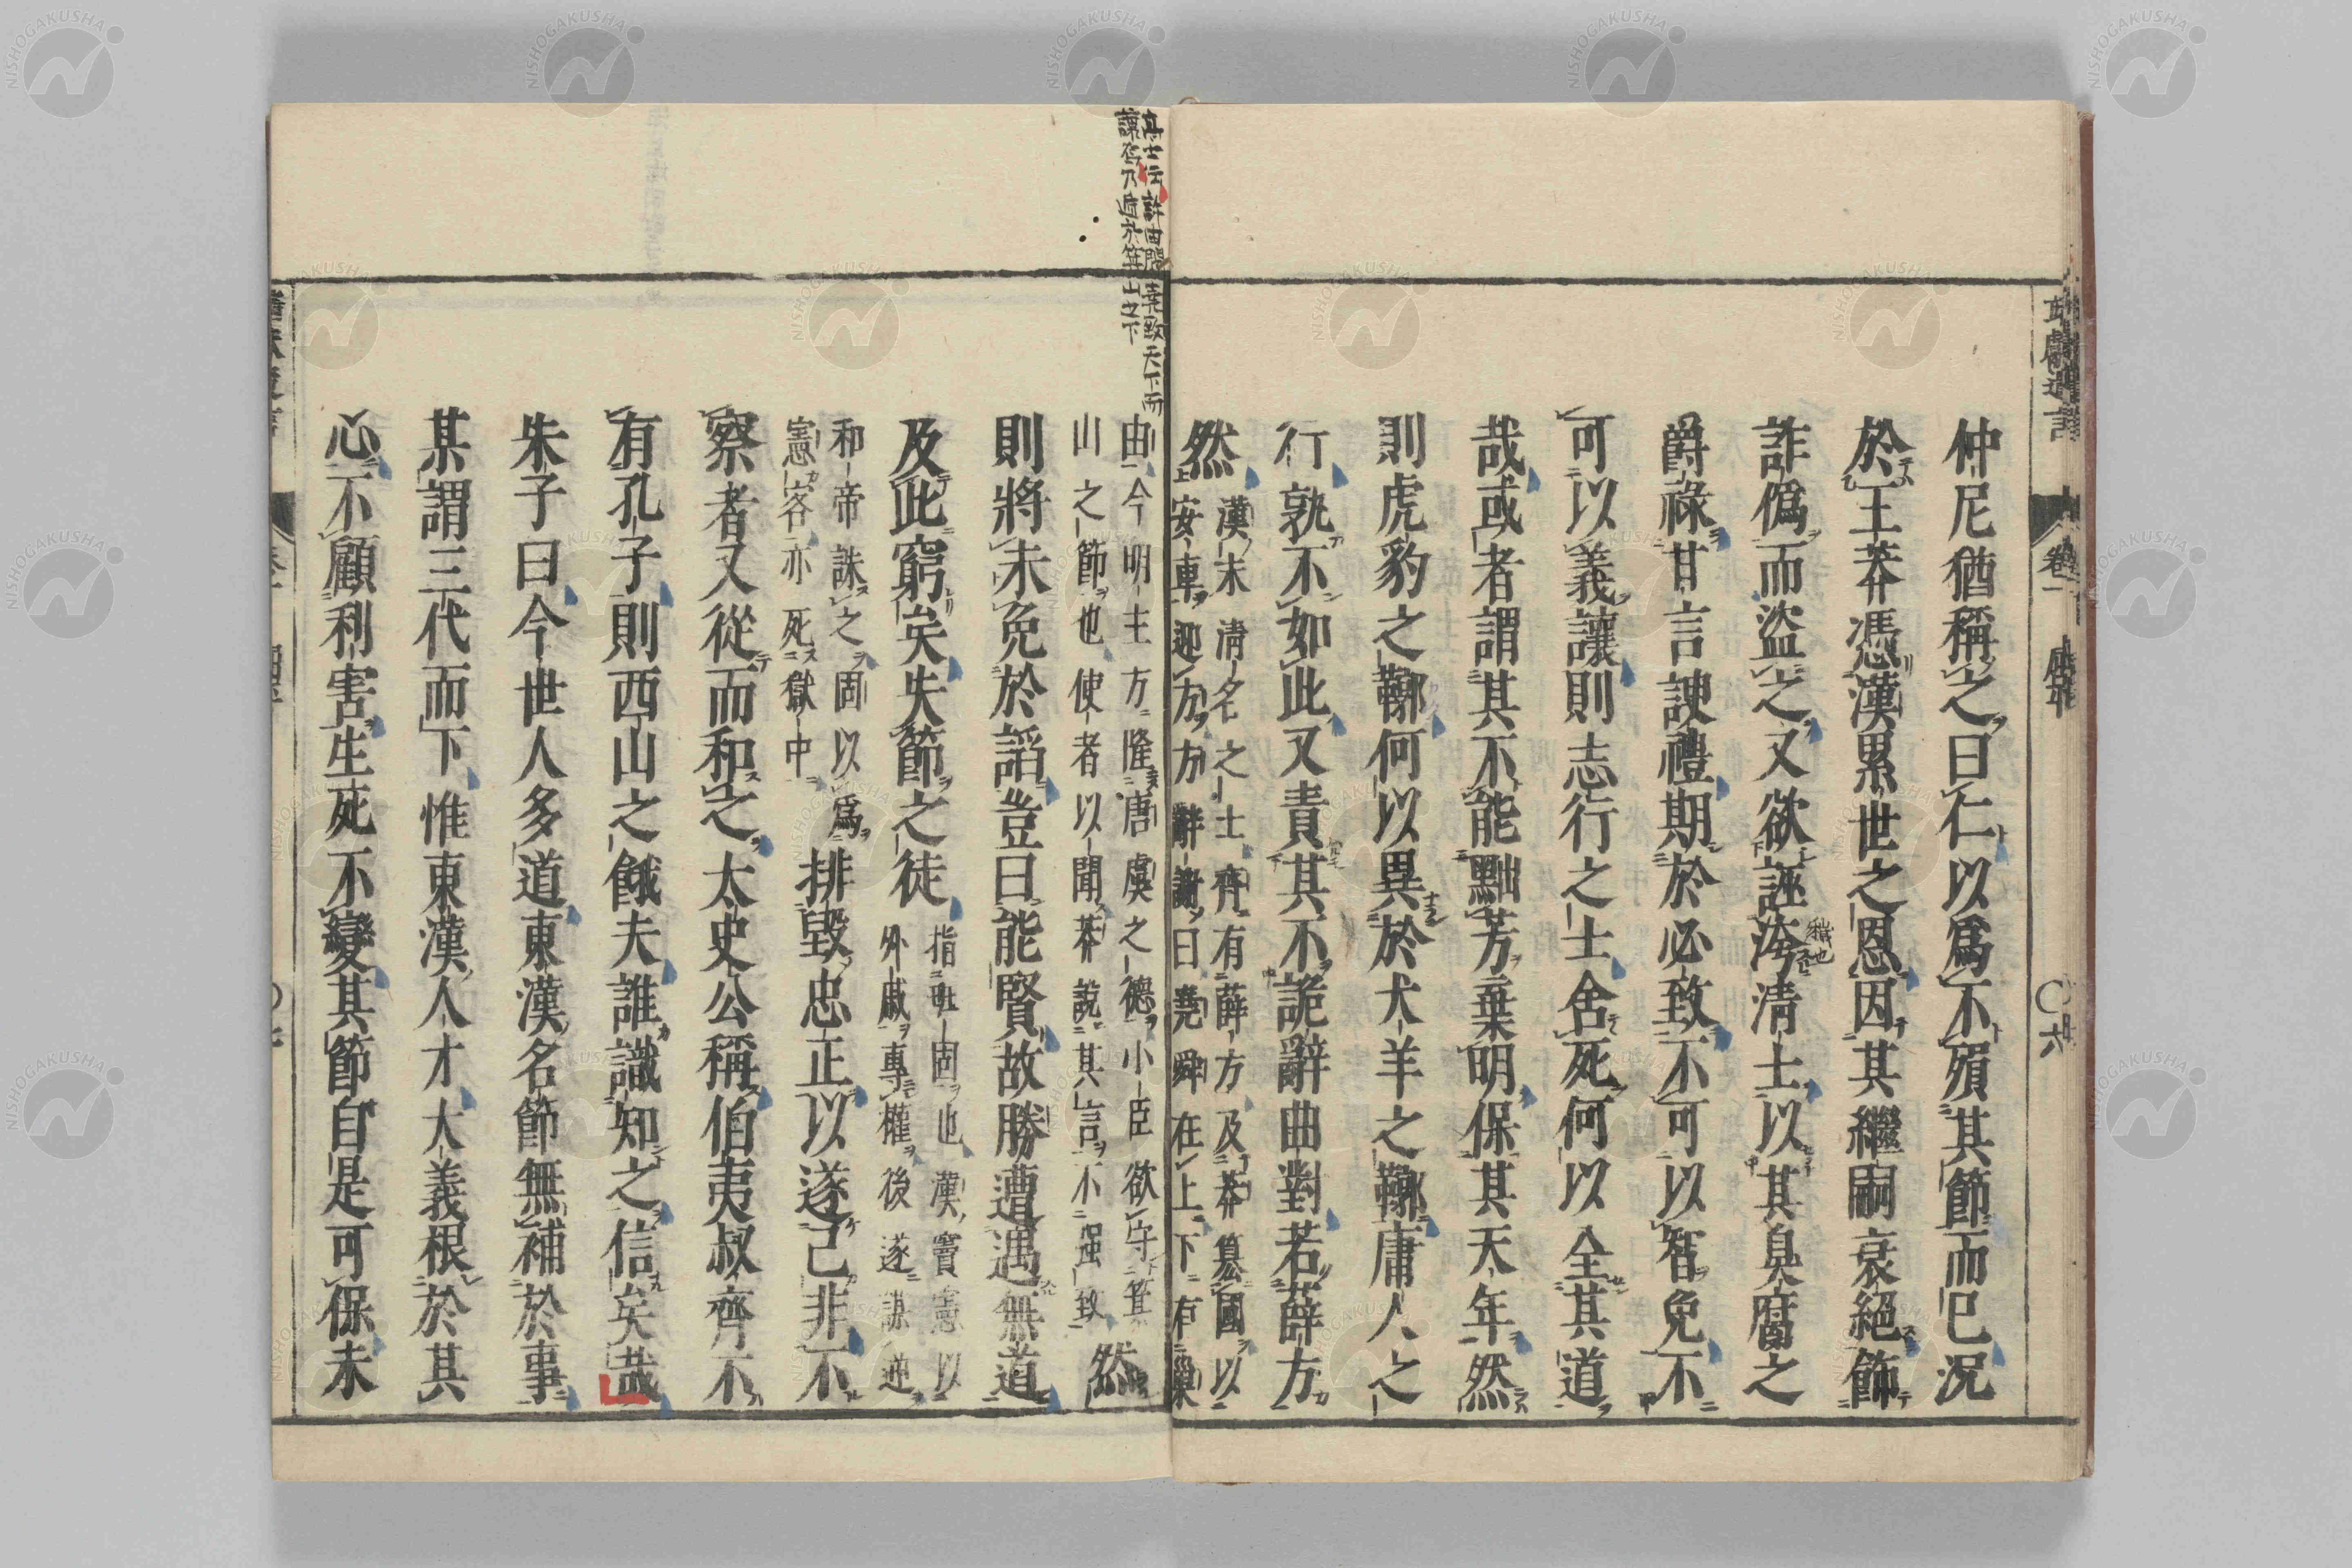 仲尼猶稱之曰仁以爲不殞其節而已況
於王莽憑漢累世之恩因其繼嗣衰絕飾
詐僞而盜之又欲誣洿清士以其臭腐之
爵祿甘言諛禮期於必致不可以智免不
可以義讓則志行之士舍死何以全其道
哉或者謂其不能黜芳棄明保其天年然
則虎豹之鞹何以異於犬羊之鞹庸人之
行孰不如此又責其不詭辭曲對若薛方
然
漢末清名之士齊有薛方及莽簒國以
安車迎方方辭謝曰堯舜在上下有巢
由今明主方隆唐虞之德小臣欲守箕
山之節也使者以聞莽說其言不强致
然
則將未免於諂豈曰能賢故勝遭遇無道
及此窮矣失節之徒
指班固也漢竇憲以
外戚專權後遂謀逆
和帝誅之固以爲
憲客亦死獄中
排毀忠正以遂己非不
察者又從而和之太史公稱伯夷叔齊不
有孔子則西山之餓夫誰識知之信矣哉
朱子曰今世人多道東漢名節無補於事
某謂三代而下惟東漢人才大義根於其
心不顧利害生死不變其節自是可保未
高士伝許由聞堯致天下而
讓爲乃遁於箕山之下
穢也
卷一
六
NISHOGAKUSHA